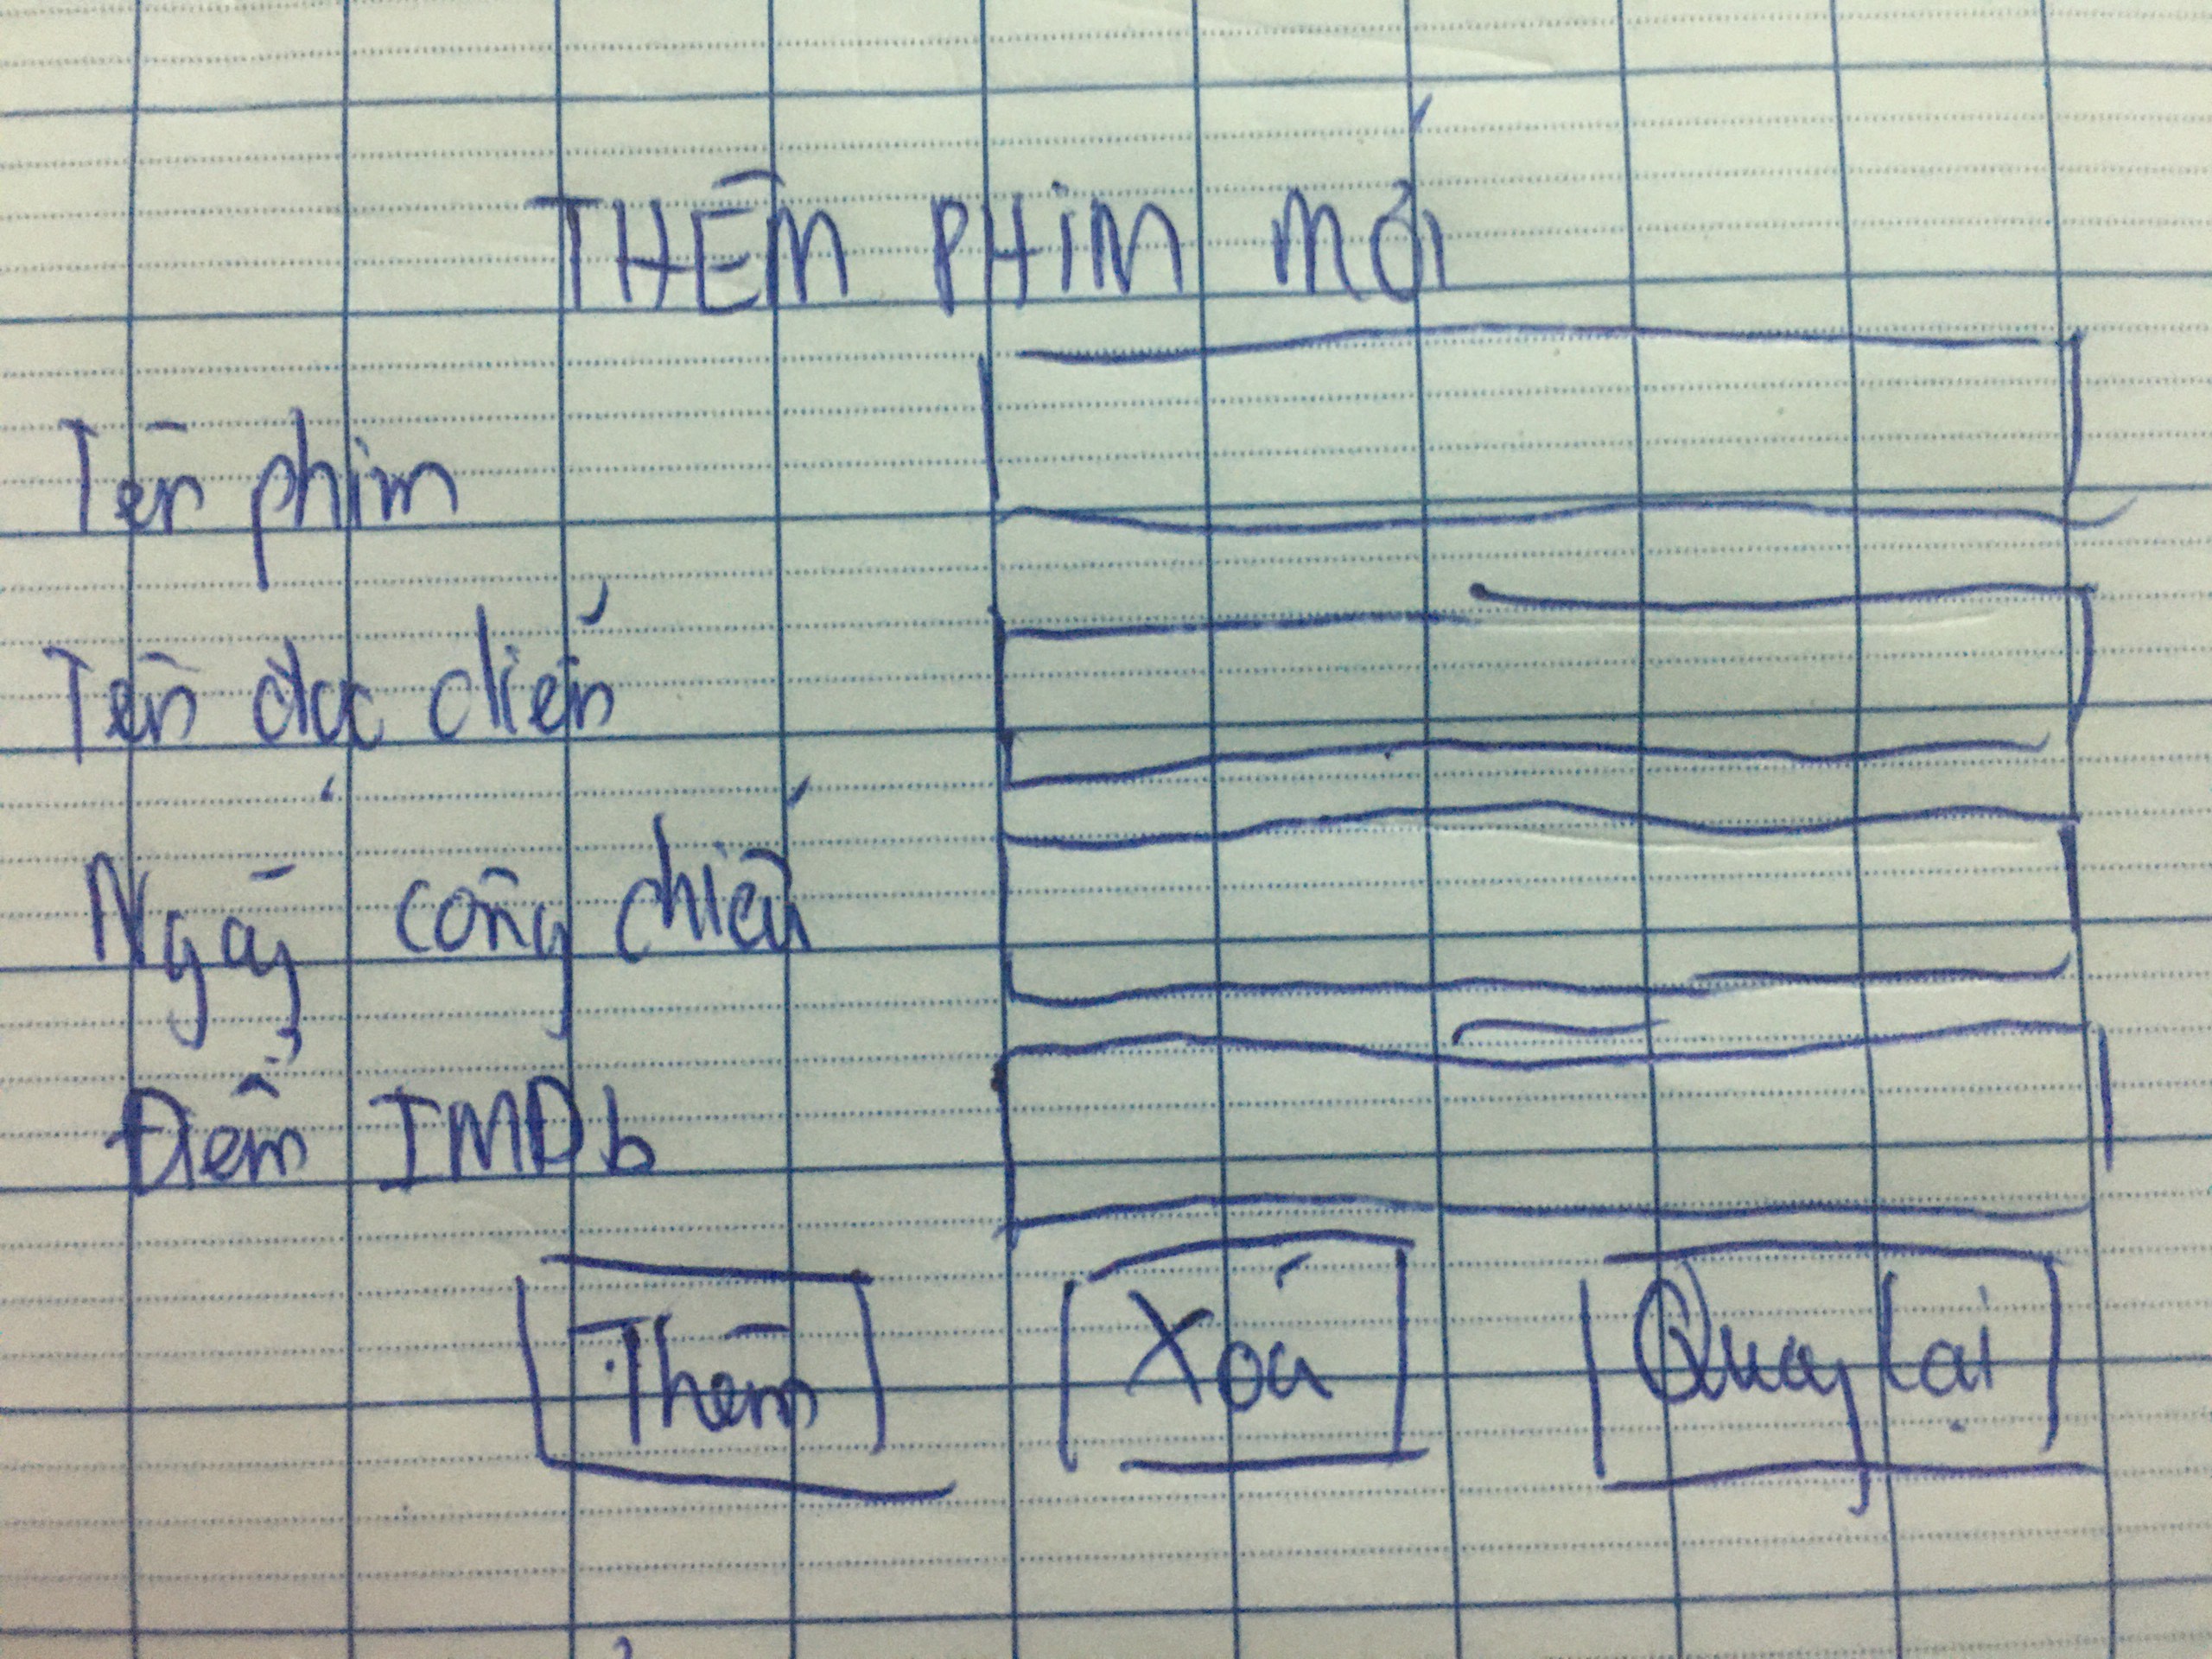 THÊM PHIM MỚI
Tên phim
Tên đạo diễn
Ngày công chiếu
Điểm IMDb
Thêm Xoá Quay lại